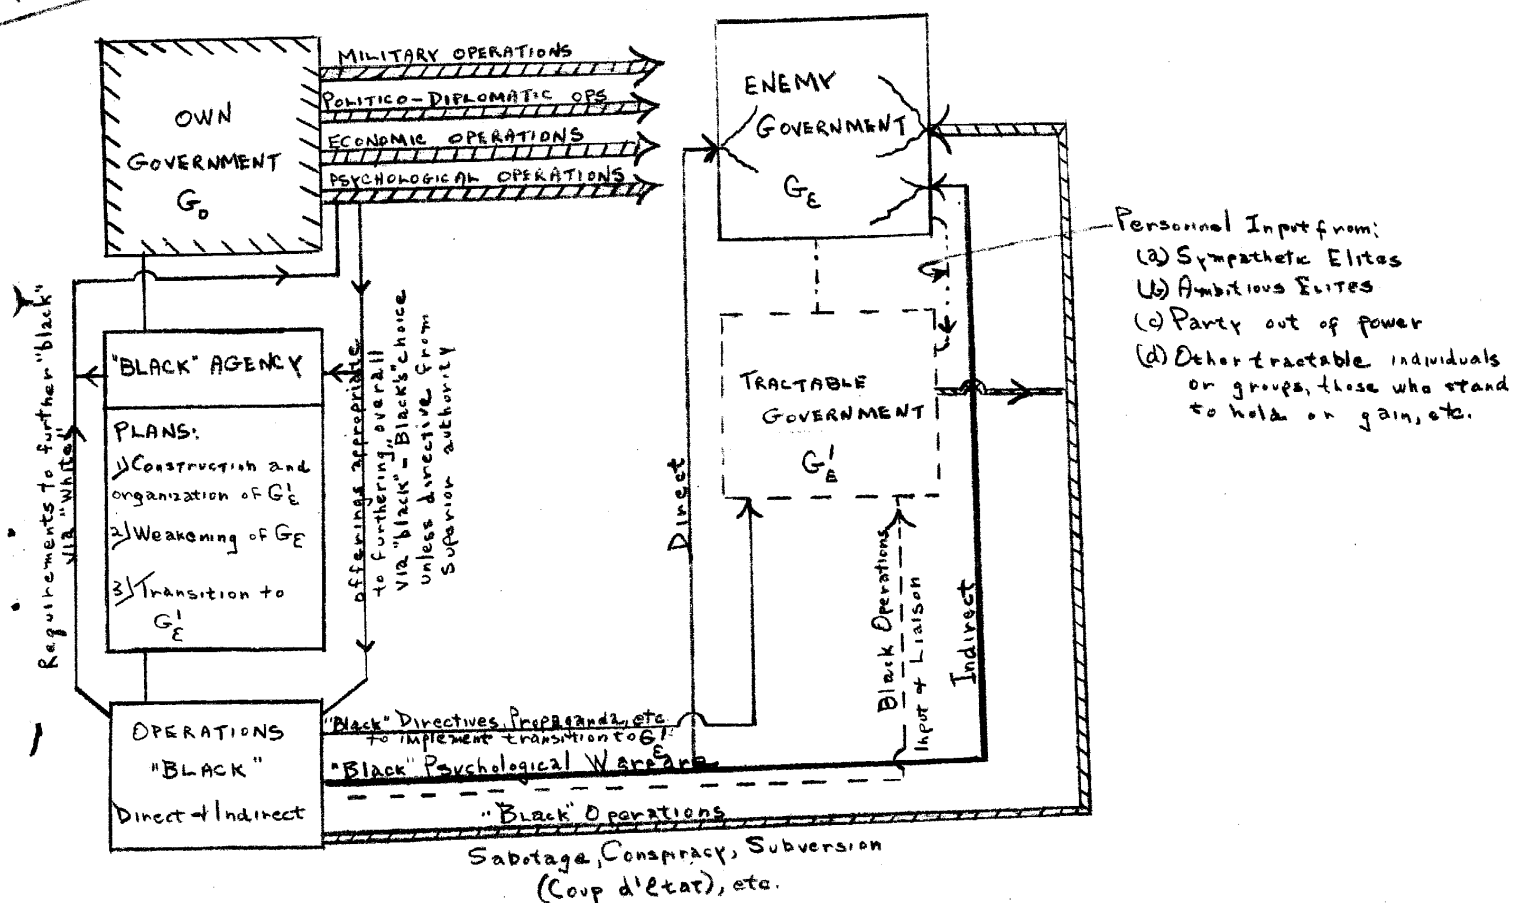 MILITARY OPERATIONS
POLITICO-DIPLOMATIC OPS
ECONOMIC OPERATIONS
PSYCHOLOGICAL OPERATIONS
OWN
GOVERNMENT
G₀
ENEMY
GOVERNMENT
G_E
Personnel Input from:
(a) Sympathetic Elites
(b) Ambitious Elites
(c) Party out of power
(d) Other tractable individuals
or groups, those who stand
to hold or gain, etc.
"BLACK" AGENCY
PLANS:
1) Construction and
organization of G'_E
2) Weakening of G_E
3) Transition to
G'_E
Requirements to further "black"
via "White"
offerings appropriate
to furthering overall
via "black" - Black's choice
unless directive from
Superior authority
TRACTABLE
GOVERNMENT
G'_E
Direct
Black Operations
Input & Liaison
Indirect
OPERATIONS
"BLACK"
Direct & Indirect
"Black" Directives, Propaganda, etc.
to implement transition to G'_E
"Black" Psychological Warfare
"Black" Operations
Sabotage, Conspiracy, Subversion
(Coup d'état), etc.